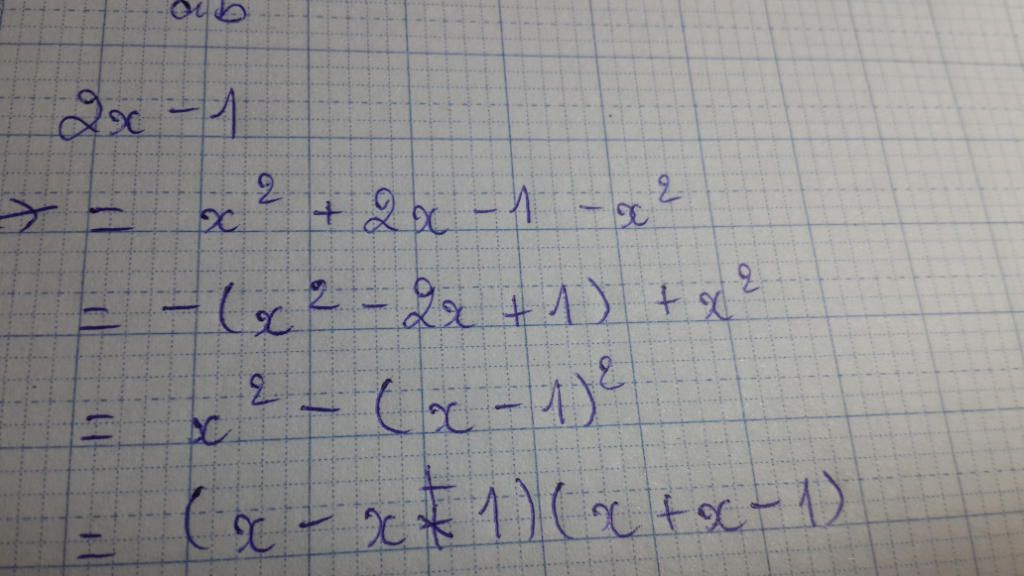 ab
2x - 1
→ = x² + 2x - 1 - x²
= - (x² - 2x + 1) + x²
= x² - (x - 1)²
= (x - x + 1)(x + x - 1)